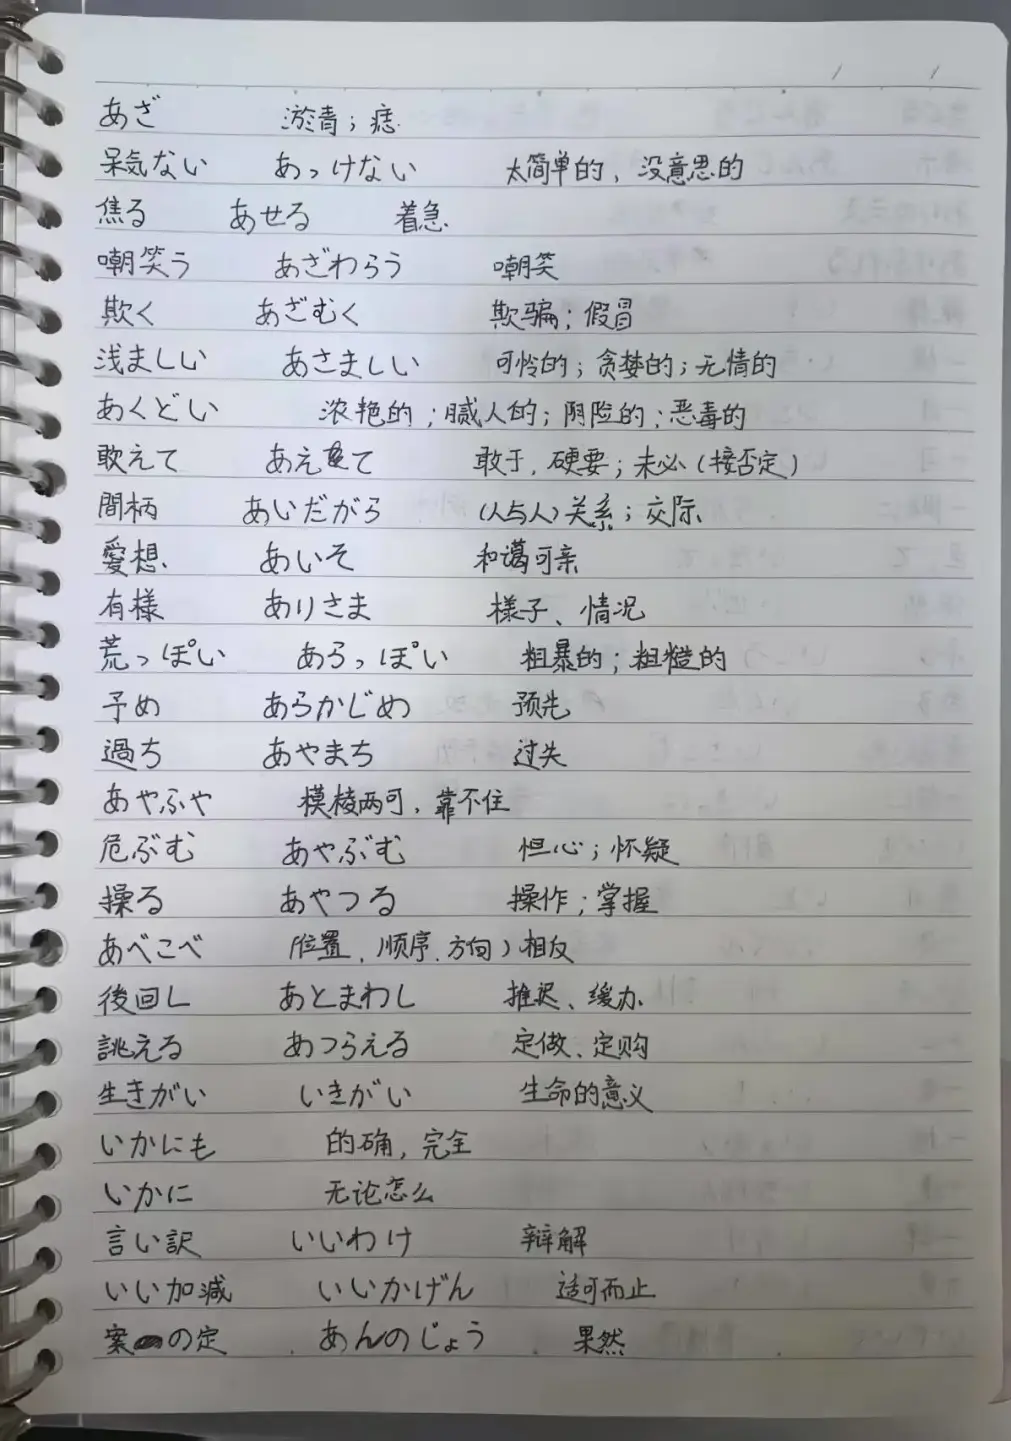 あざ 淤青；痣
呆気ない あっけない 太简单的、没意思的
焦る あせる 着急
嘲笑う あざわらう 嘲笑
欺く あざむく 欺骗；假冒
浅ましい あさましい 可怜的；贪婪的；无情的
あくどい 浓艳的；腻人的；阴险的；恶毒的
敢えて あえて 敢于，硬要；未必（接否定）
間柄 あいだがら （人与人）关系；交际
愛想 あいそ 和蔼可亲
有様 ありさま 様子、情况
荒っぽい あらっぽい 粗暴的；粗糙的
予め あらかじめ 预先
過ち あやまち 过失
あやふや 模棱两可，靠不住
危ぶむ あやぶむ 担心；怀疑
操る あやつる 操作；掌握
あべこべ （位置、顺序、方向）相反
後回し あとまわし 推迟、缓办
誂える あつらえる 定做、定购
生きがい いきがい 生命的意义
いかにも 的确，完全
いかに 无论怎么
言い訳 いいわけ 辩解
いい加減 いいかげん 适可而止
案の定 あんのじょう 果然